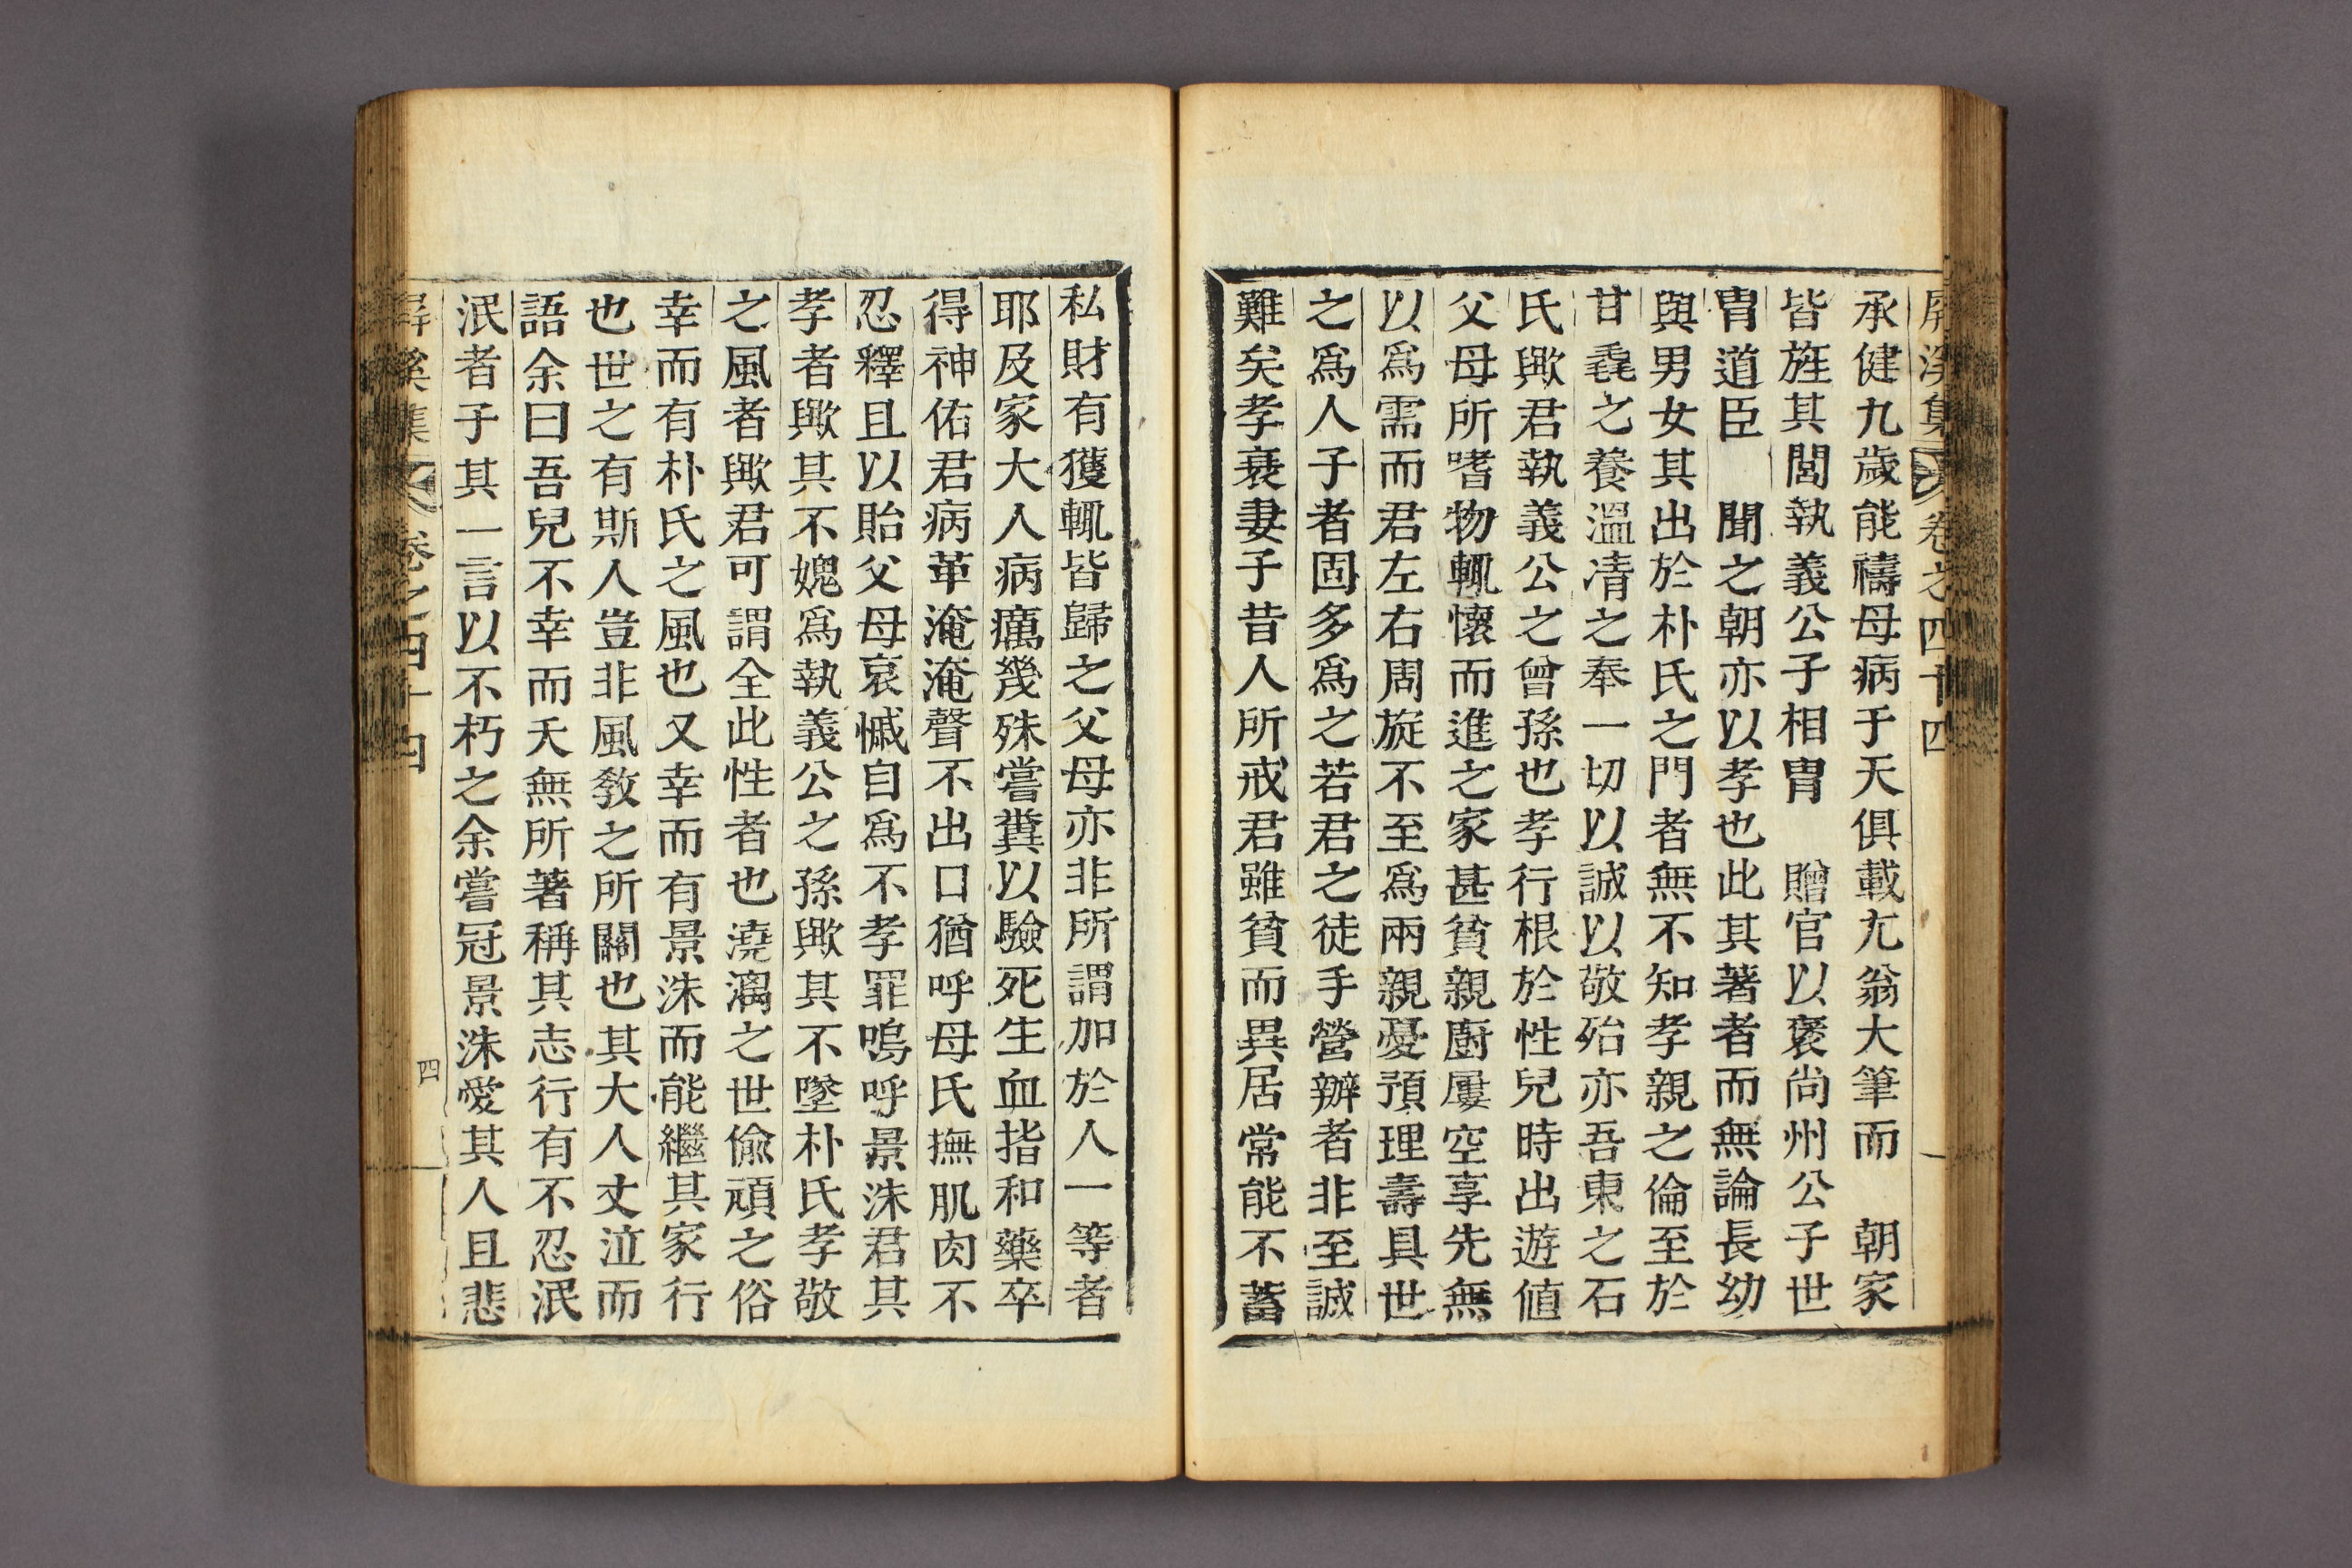 屛溪集 卷之四十四
承健九歲能禱母病于天俱載尤翁大筆而 朝家
皆旌其閭執義公子相冑 贈官以褒尙州公子世
冑道臣 聞之朝亦以孝也此其著者而無論長幼
與男女其出於朴氏之門者無不知孝親之倫至於
甘毳之養溫凊之奉一切以誠以敬殆亦吾東之石
氏歟君執義公之曾孫也孝行根於性兒時出遊値
父母所嗜物輒懷而進之家甚貧親廚屢空享先無
以爲需而君左右周旋不至爲兩親憂預理壽具世
之爲人子者固多爲之若君之徒手營辦者非至誠
難矣孝衰妻子昔人所戒君雖貧而異居常能不蓄
私財有獲輒皆歸之父母亦非所謂加於人一等者
耶及家大人病癘幾殊嘗糞以驗死生血指和藥卒
得神佑君病革淹淹聲不出口猶呼母氏撫肌肉不
忍釋且以貽父母哀慽自爲不孝罪嗚呼景洙君其
孝者歟其不媿爲執義公之孫歟其不墜朴氏孝敬
之風者歟君可謂全此性者也澆漓之世偸頑之俗
幸而有朴氏之風也又幸而有景洙而能繼其家行
也世之有斯人豈非風敎之所關也其大人丈泣而
語余曰吾兒不幸而夭無所著稱其志行有不忍泯
泯者子其一言以不朽之余嘗冠景洙愛其人且悲
屛溪集 卷之四十四 四